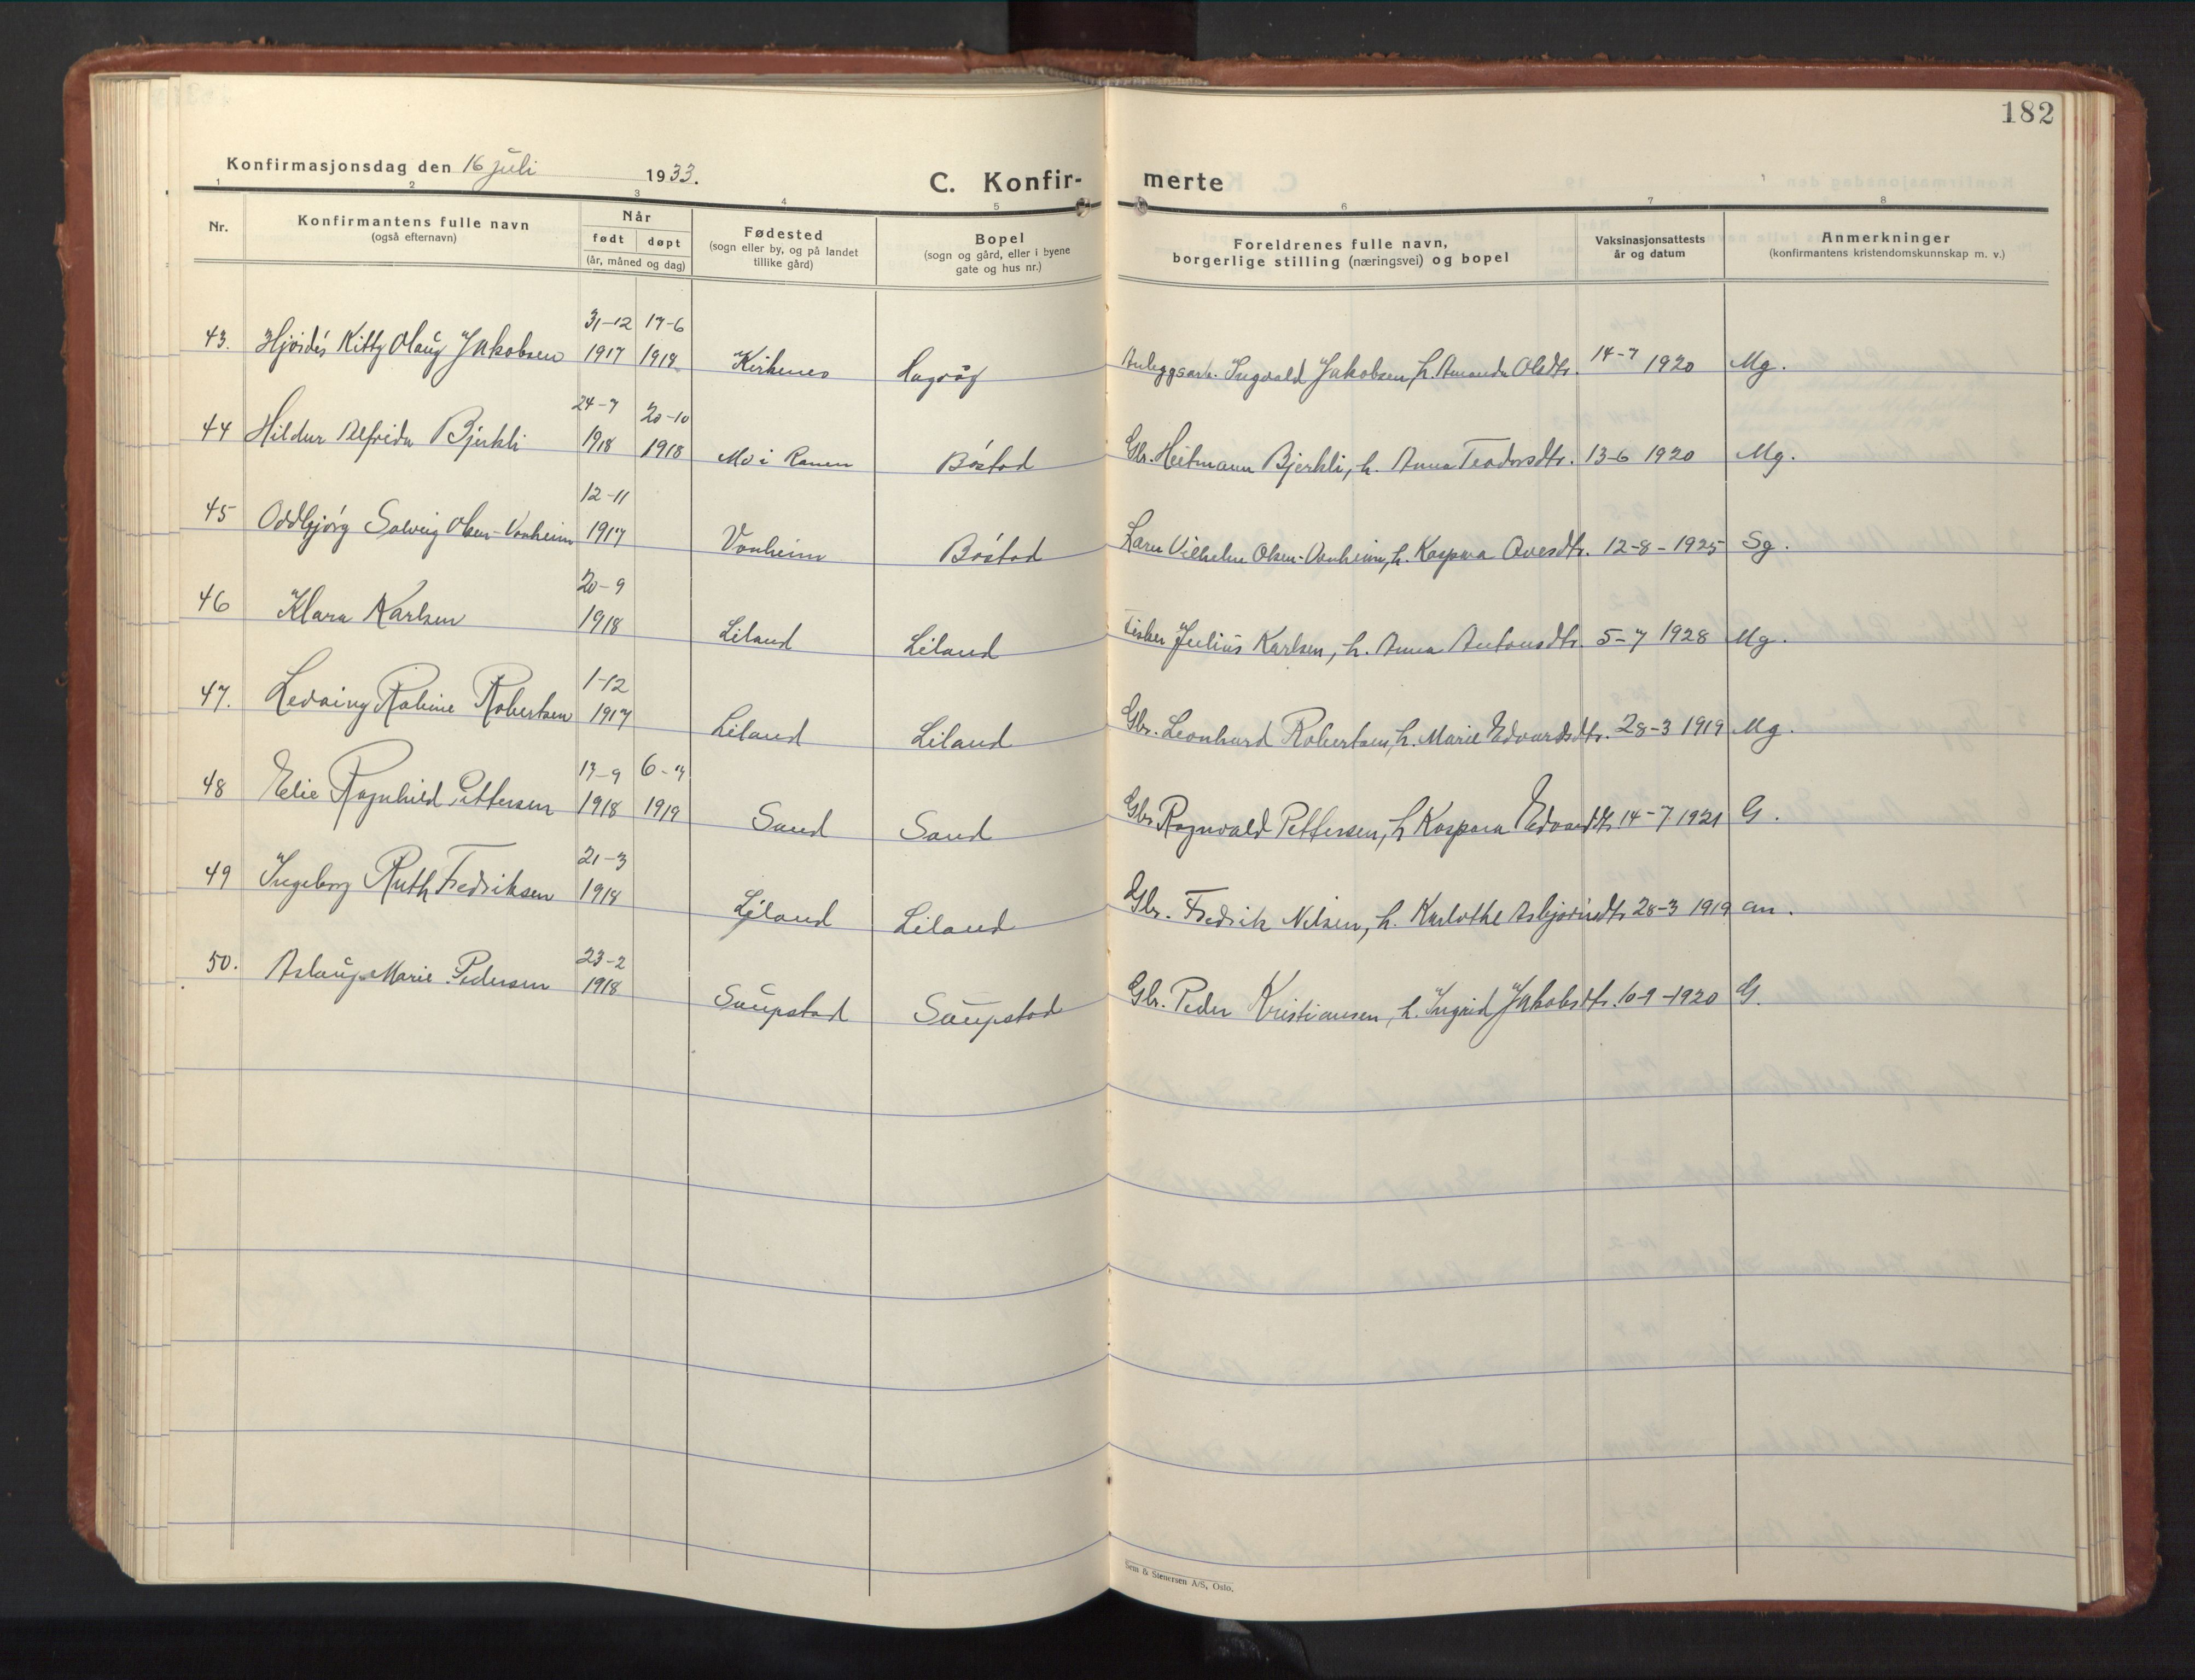 182
Konfirmasjonsdag den 16 juli 1933.
C. Konfir- merte
1 2 3 4 5 6 7 8
Nr.
Konfirmantens fulle navn
(også efternavn)
Når
født døpt
(år, måned og dag)
Fødested
(sogn eller by, og på landet
tillike gård)
Bopel
(sogn og gård, eller i byene
gate og hus nr.)
Foreldrenes fulle navn,
borgerlige stilling (næringsvei) og bopel
Vaksinasjonsattests
år og datum
Anmerkninger
(konfirmantens kristendomskunnskap m. v.)
31-12 17-6
43. Hjørdis Kitty Olaug Jakobsen 1917 1918 Kirkenes Hagråf Anleggsarb. Ingvald Jakobsen, h. Amanda Olsdtr. 14-7 1920 Mg.
24-7 20-10
44 Hildur Alfrida Bjerkli 1918 1918 Mo i Ranen Bøstad Gbr. Heitmann Bjerkli, h. Anna Teodorsdtr. 13-6 1920 Mg.
12-11
45 Oddbjørg Solveig Olsen-Vonheim 1917 Vonheim Bøstad Lærer Vilhelm Olsen-Vonheim, h. Kaspara Ovesdtr. 12-8-1925 Sg.
20-9
46 Klara Karlsen 1918 Liland Liland Fisker Julius Karlsen, h. Anna Antonsdtr. 5-7 1928 Mg.
1-12
47. Robine Robertsen 1917 Liland Liland Gbr. Leonhard Robertsen, h. Marie Edvardsdtr. 28-3 1919 Mg.
17-9 6-7
48 Elie Ragnhild Pettersen 1918 1919 Sand Sand Gbr. Ragnvald Pettersen, h Kaspara Edvardsdtr 14-7 1921 G.
21-3
49 Ingeborg Ruth Fredriksen 1918 Liland Liland Gbr. Fredrik Nilsen, h. Karlothe Asbjørnsdtr 28-3 1919 an.
23-2
50. Aslaug Marie Pedersen 1918 Saupstad Saupstad Gbr. Peder Kristiansen, h. Ingrid Jakobsdtr. 10-9-1920 G.
Sem & Stenersen A/S, Oslo.